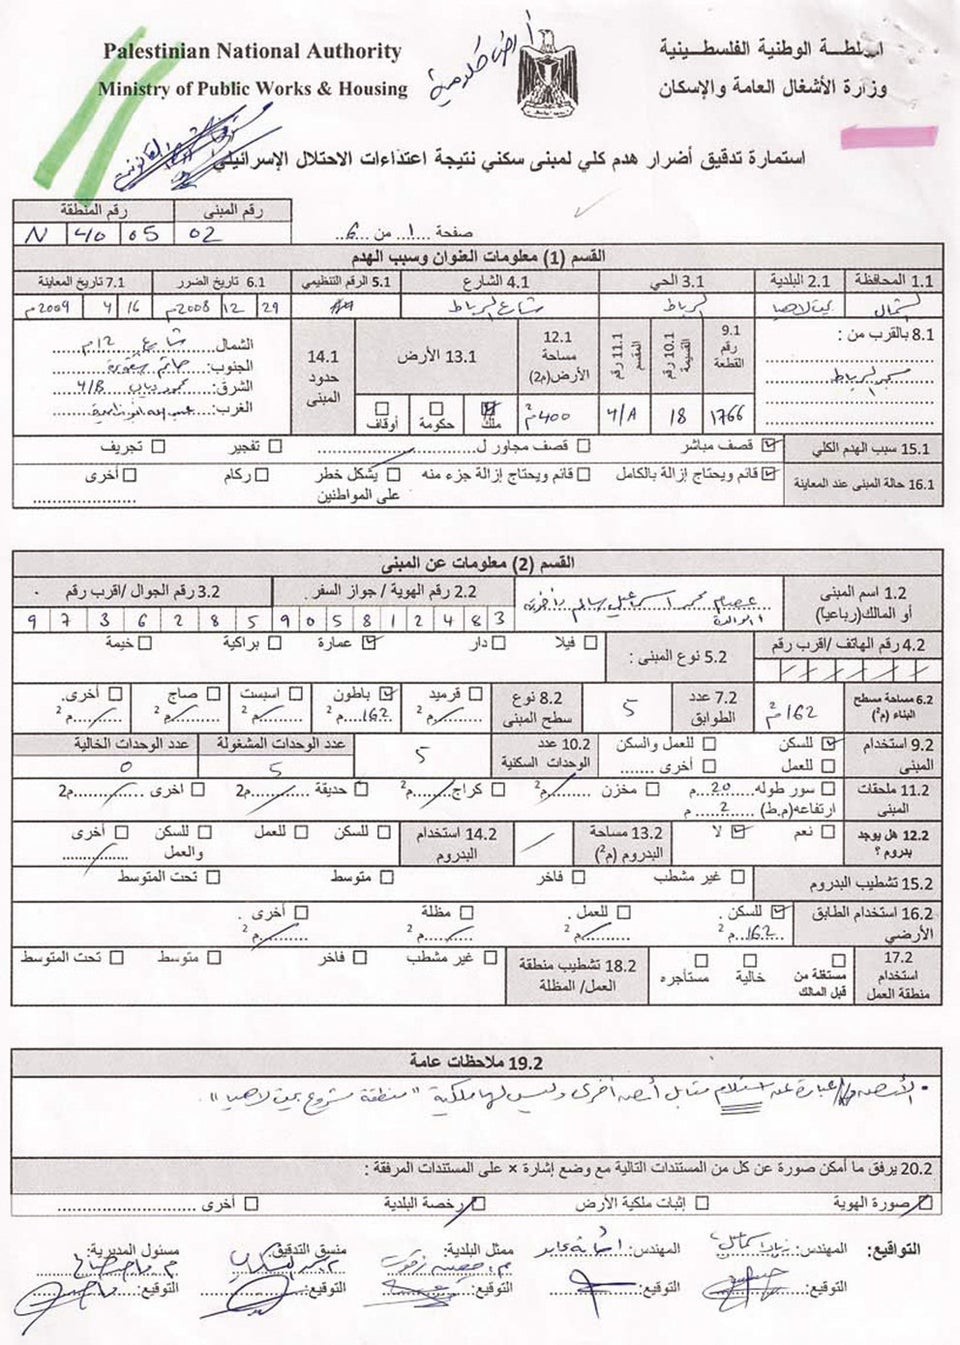 أرض حكومية
Palestinian National Authority
Ministry of Public Works & Housing
السلطة الوطنية الفلسطينية
وزارة الأشغال العامة والإسكان
استمارة تدقيق أضرار هدم كلي لمبنى سكني نتيجة اعتداءات الاحتلال الإسرائيلي
رقم المنطقة رقم المبنى
N 40 05 02
صفحة 1 من 6
القسم (1) معلومات العنوان وسبب الهدم
1.1 المحافظة 2.1 البلدية 3.1 الحي 4.1 الشارع 5.1 الرقم التنظيمي 6.1 تاريخ الضرر 7.1 تاريخ المعاينة
الشمال بيت لاهيا الرباط شارع الرباط 29 12 2008م 16 4 2009م
8.1 بالقرب من :
مسجد الرباط
9.1 رقم القطعة 10.1 رقم القسيمة 11.1 رقم المقسم 12.1 مساحة الأرض (م2) 13.1 الأرض 14.1 حدود المبنى
1766 18 4/A 400م2 ملك حكومة أوقاف
الشمال: شارع 12م
الجنوب:
الشرق: 4/B
الغرب:
15.1 سبب الهدم الكلي قصف مباشر قصف مجاور ل تفجير تجريف
16.1 حالة المبنى عند المعاينة قائم ويحتاج إزالة بالكامل قائم ويحتاج إزالة جزء منه يشكل خطر على المواطنين ركام أخرى
القسم (2) معلومات عن المبنى
1.2 اسم المبنى أو المالك(رباعيا)
2.2 رقم الهوية / جواز السفر 3.2 رقم الجوال / اقرب رقم
9 7 3 6 2 8 5 9 0 5 8 1 2 4 8 3
4.2 رقم الهاتف /اقرب رقم
5.2 نوع المبنى : فيلا دار عمارة براكية خيمة
6.2 مساحة مسطح البناء (م2) 162م2 7.2 عدد الطوابق 5 8.2 نوع سطح المبنى قرميد م2 باطون 162م2 اسبست م2 صاج م2 أخرى. م2
9.2 استخدام المبنى للسكن للعمل والسكن للعمل أخرى 10.2 عدد الوحدات السكنية 5 عدد الوحدات المشغولة 5 عدد الوحدات الخالية 0
11.2 ملحقات المبنى سور طوله 20 م ارتفاعه(م.ط) 2 م مخزن م2 كراج م2 حديقة م2 اخرى م2
12.2 هل يوجد بدروم ؟ نعم لا 13.2 مساحة البدروم (م2) 14.2 استخدام البدروم للسكن للعمل للسكن والعمل أخرى
15.2 تشطيب البدروم غير مشطب فاخر متوسط تحت المتوسط
16.2 استخدام الطابق الأرضي للسكن . 162م2 للعمل . م2 مظلة م2 أخرى . م2
17.2 استخدام منطقة العمل مستغلة من قبل المالك خالية مستأجره 18.2 تشطيب منطقة العمل/ المظلة غير مشطب فاخر متوسط تحت المتوسط
19.2 ملاحظات عامة
عبارة عن استلام مقابل أرض أخرى وليس لها ملكية "منطقة مشروع بيت لاهيا".
20.2 يرفق ما أمكن صورة عن كل من المستندات التالية مع وضع إشارة × على المستندات المرفقة :
صورة الهوية إثبات ملكية الأرض رخصة البلدية أخرى
التواقيع: المهندس: المهندس: ممثل البلدية: منسق التدقيق: مسئول المديرية:
التوقيع: التوقيع: التوقيع: التوقيع: التوقيع: